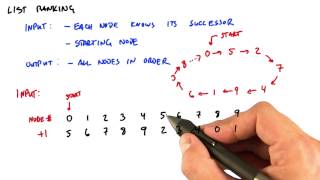 LIST RANKING
INPUT: - EACH NODE KNOWS ITS SUCCESSOR
- STARTING NODE
OUTPUT: - ALL NODES IN ORDER
START
3 8... 0 → 5 → 2 7 4 ← 9 ← 1 ← 6
INPUT: START
NODE # 0 1 2 3 4 5 6 7 8 9
+1 5 6 7 8 9 2 4 0 1